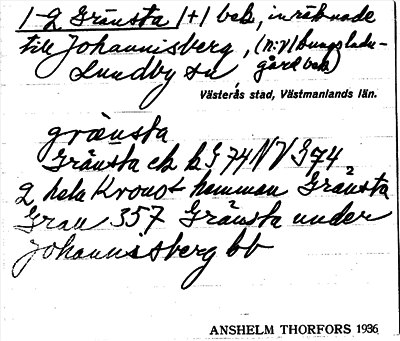 1-2 Gränsta 1+1 bek, inräknade
till Johannisberg, (n:r 1 kungsladu-
Lundby sn gård bek)
Västerås stad, Västmanlands län.
grœnsta
Gränsta ek b G 74 NV G 74
2 hela Kronot hemman Gränsta
Grau 357 Gränsta under
Johannisberg bb
ANSHELM THORFORS 1936